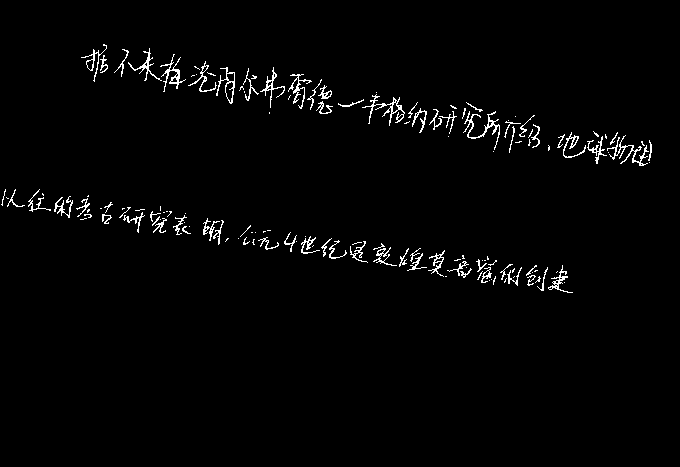 据不来梅港阿尔弗雷德一韦格纳研究所介绍,地球物理
以往的考古研究表明,公元4世纪是敦煌莫高窟的创建